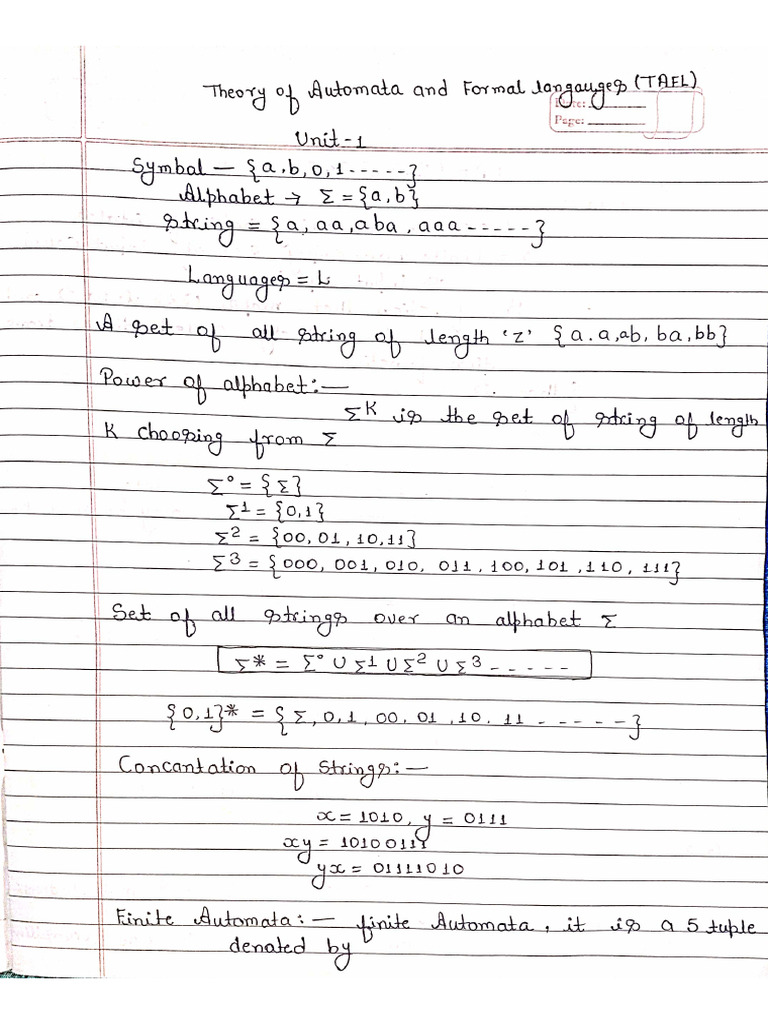 Theory of Automata and Formal langauges (TAFL)
Date:
Page:
Unit-1
Symbal — {a,b,0,1-----}
Alphabet → Σ = {a,b}
string = {a, aa, aba, aaa-----}
Languages = L
A set of all string of length 'z' {a.a,ab, ba,bb}
Power of alphabet:—
Σᴷ is the set of string of length
K choosing from Σ
Σ° = {Σ}
Σ¹ = {0,1}
Σ² = {00, 01, 10,11}
Σ³ = {000, 001, 010, 011, 100, 101, 110, 111}
Set of all strings over an alphabet Σ
Σ* = Σ° U Σ¹ U Σ² U Σ³ - - - - -
{0,1}* = {Σ, 0, 1, 00, 01, 10. 11 - - - - -}
Concantation of strings:—
x = 1010, y = 0111
xy = 10100111
yx = 01111010
Finite Automata:— finite Automata, it is a 5 tuple
denated by